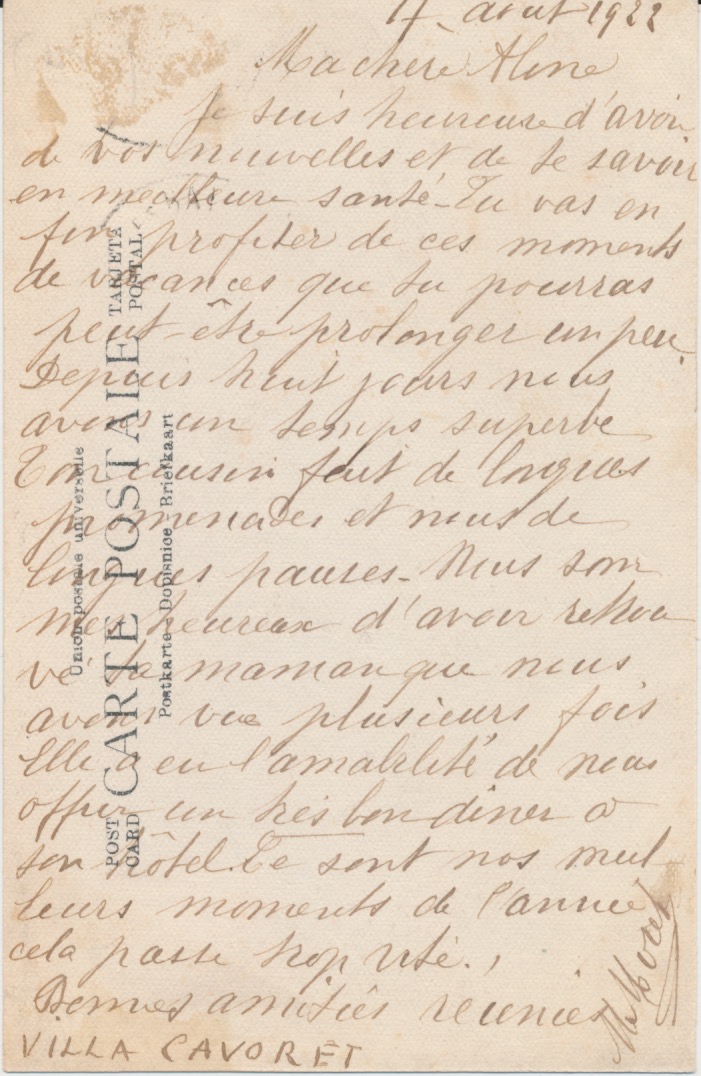 17 août 1922
Ma chère Aline
Je suis heureuse d'avoir
de vos nouvelles et de te savoir
en meilleure santé. Tu vas en
fin profiter de ces moments
de vacances que tu pourras
peut-être prolonger un peu.
Depuis huit jours nous
avons un temps superbe
Ton cousin fait de longues
promenades et nous de
longues pauses. Nous som
mes heureux d'avoir retrou
vé ta maman que nous
avons vue plusieurs fois
Elle a eu l'amabilité de nous
offrir un très bon dîner à
son hôtel. Ce sont nos meil
leurs moments de l'année
cela passe trop vite.
Bonnes amitiés réunies
VILLA CAVORET
Union postale universelle
CARTE POSTALE
POST CARD
TARJETA POSTAL
Postkarte - Dopisnice - Briefkaart